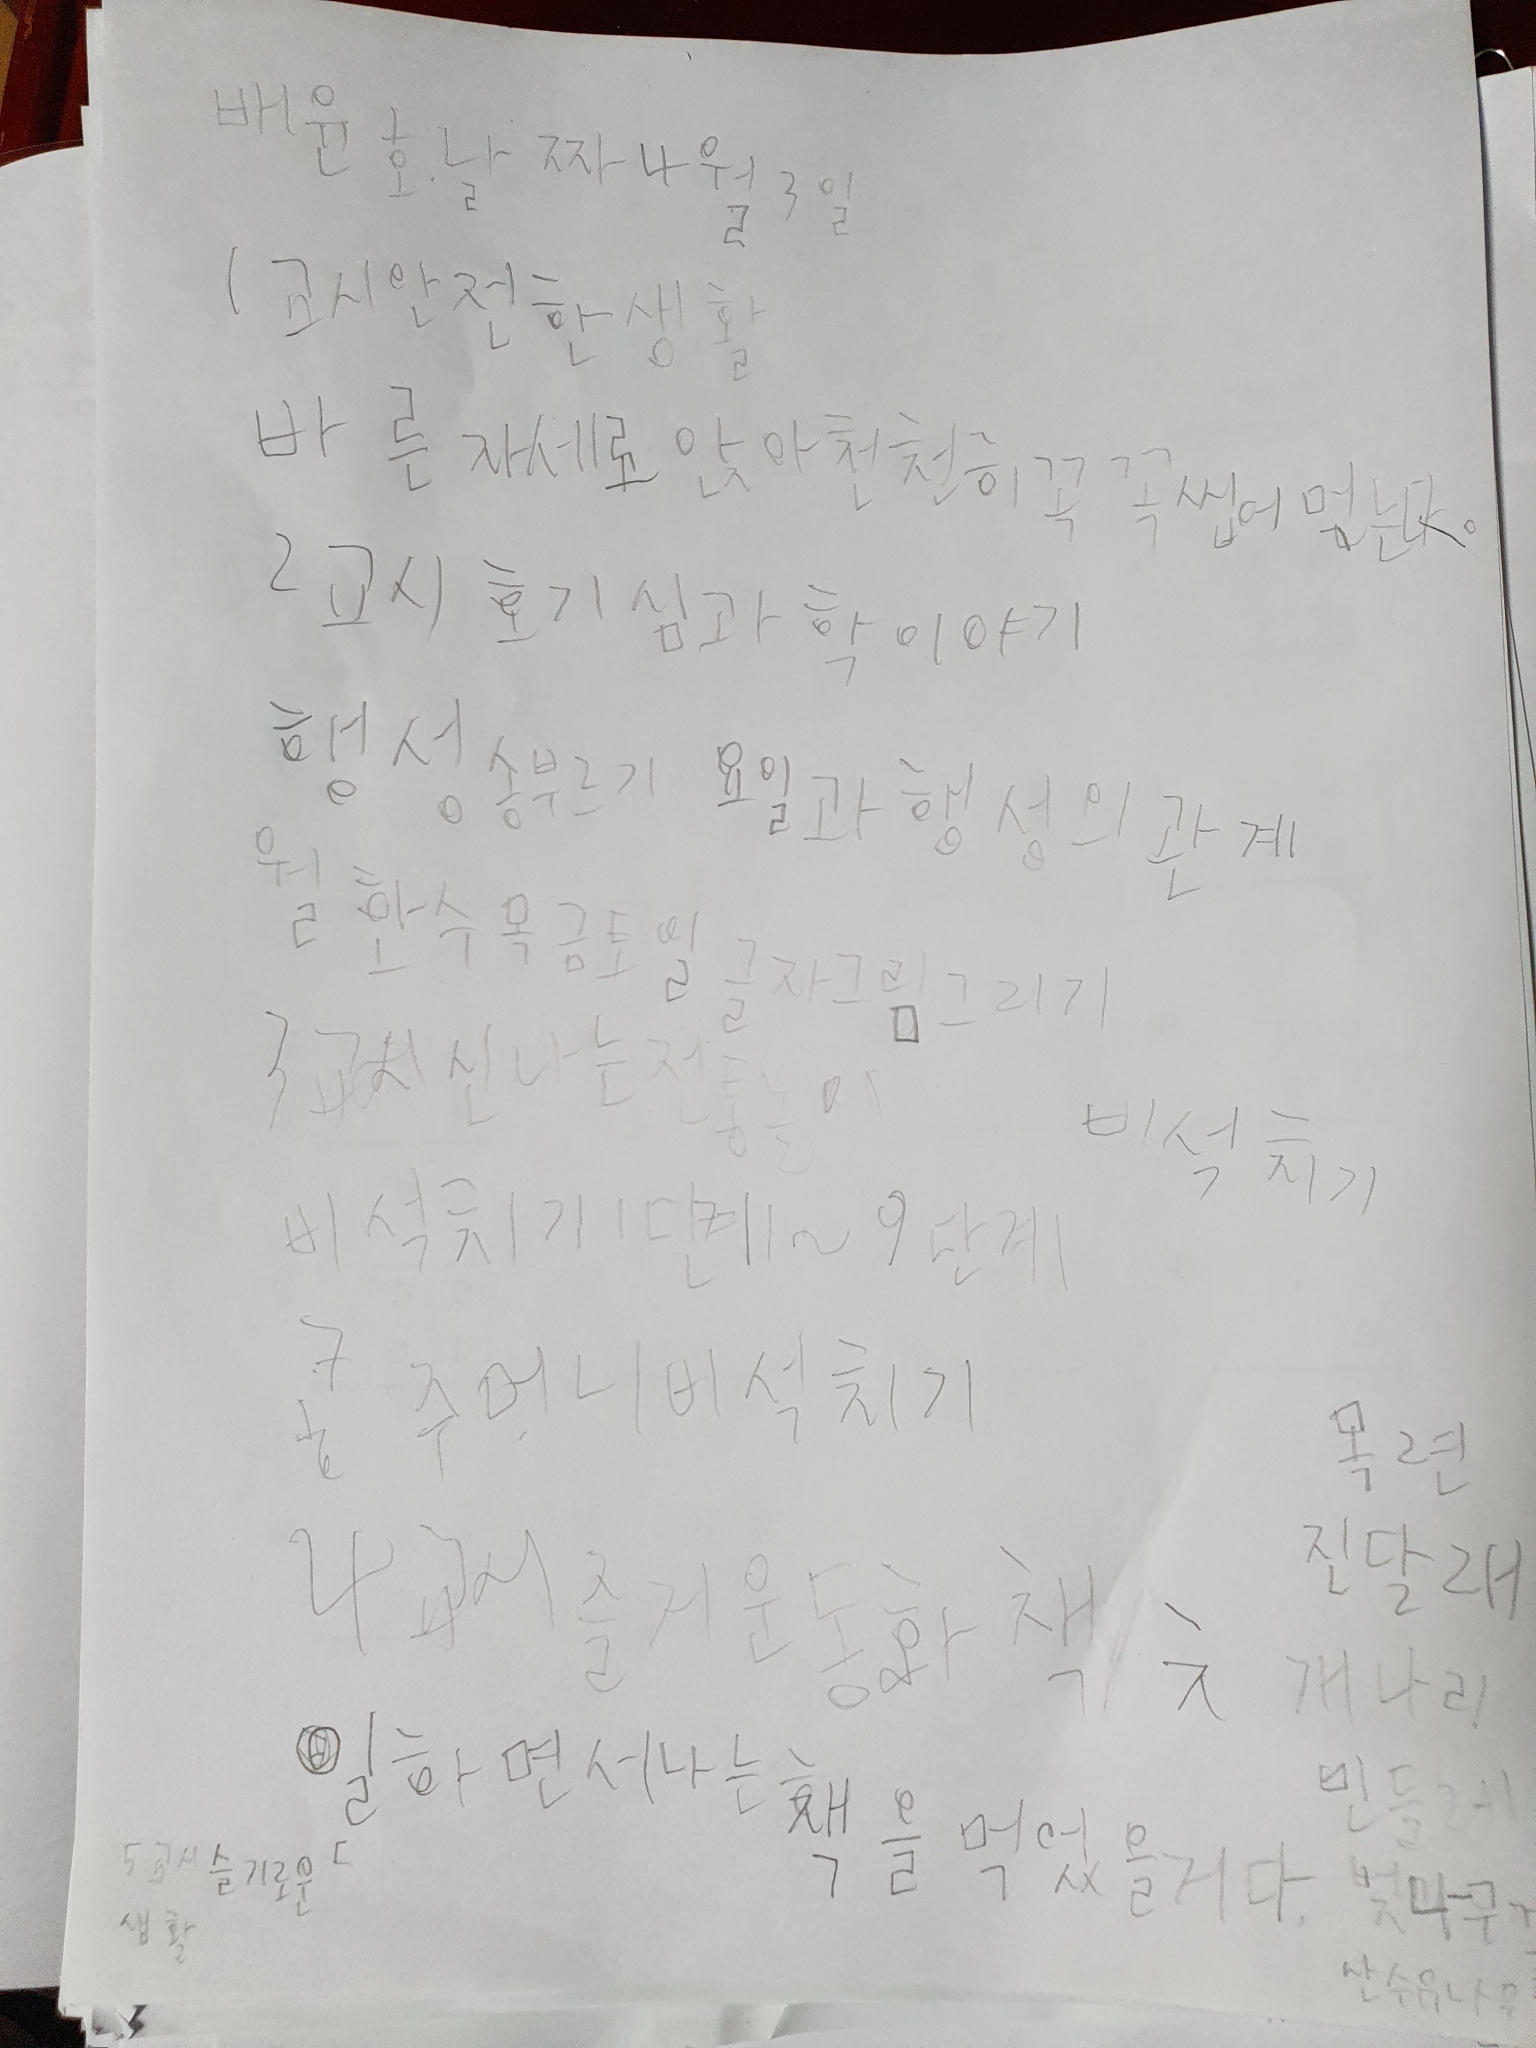 배윤호. 날짜 4월 3일
1교시 안전한 생활
바른 자세로 앉아 천천히 꼭꼭 씹어 먹는다.
2교시 호기심 과학이야기
행성송부르기 요일과 행성의 관계
월화수목금토일 글자그림그리기
3교시 신나는 전통놀이
비석치기
비석치기 1단계~9단계
주머니 비석치기
4교시 즐거운 동화책
일하면서 나는 책을 먹었을거다.
5교시 슬기로운
생활
목련
진달래
개나리
민들레
벚나무
산수유나무